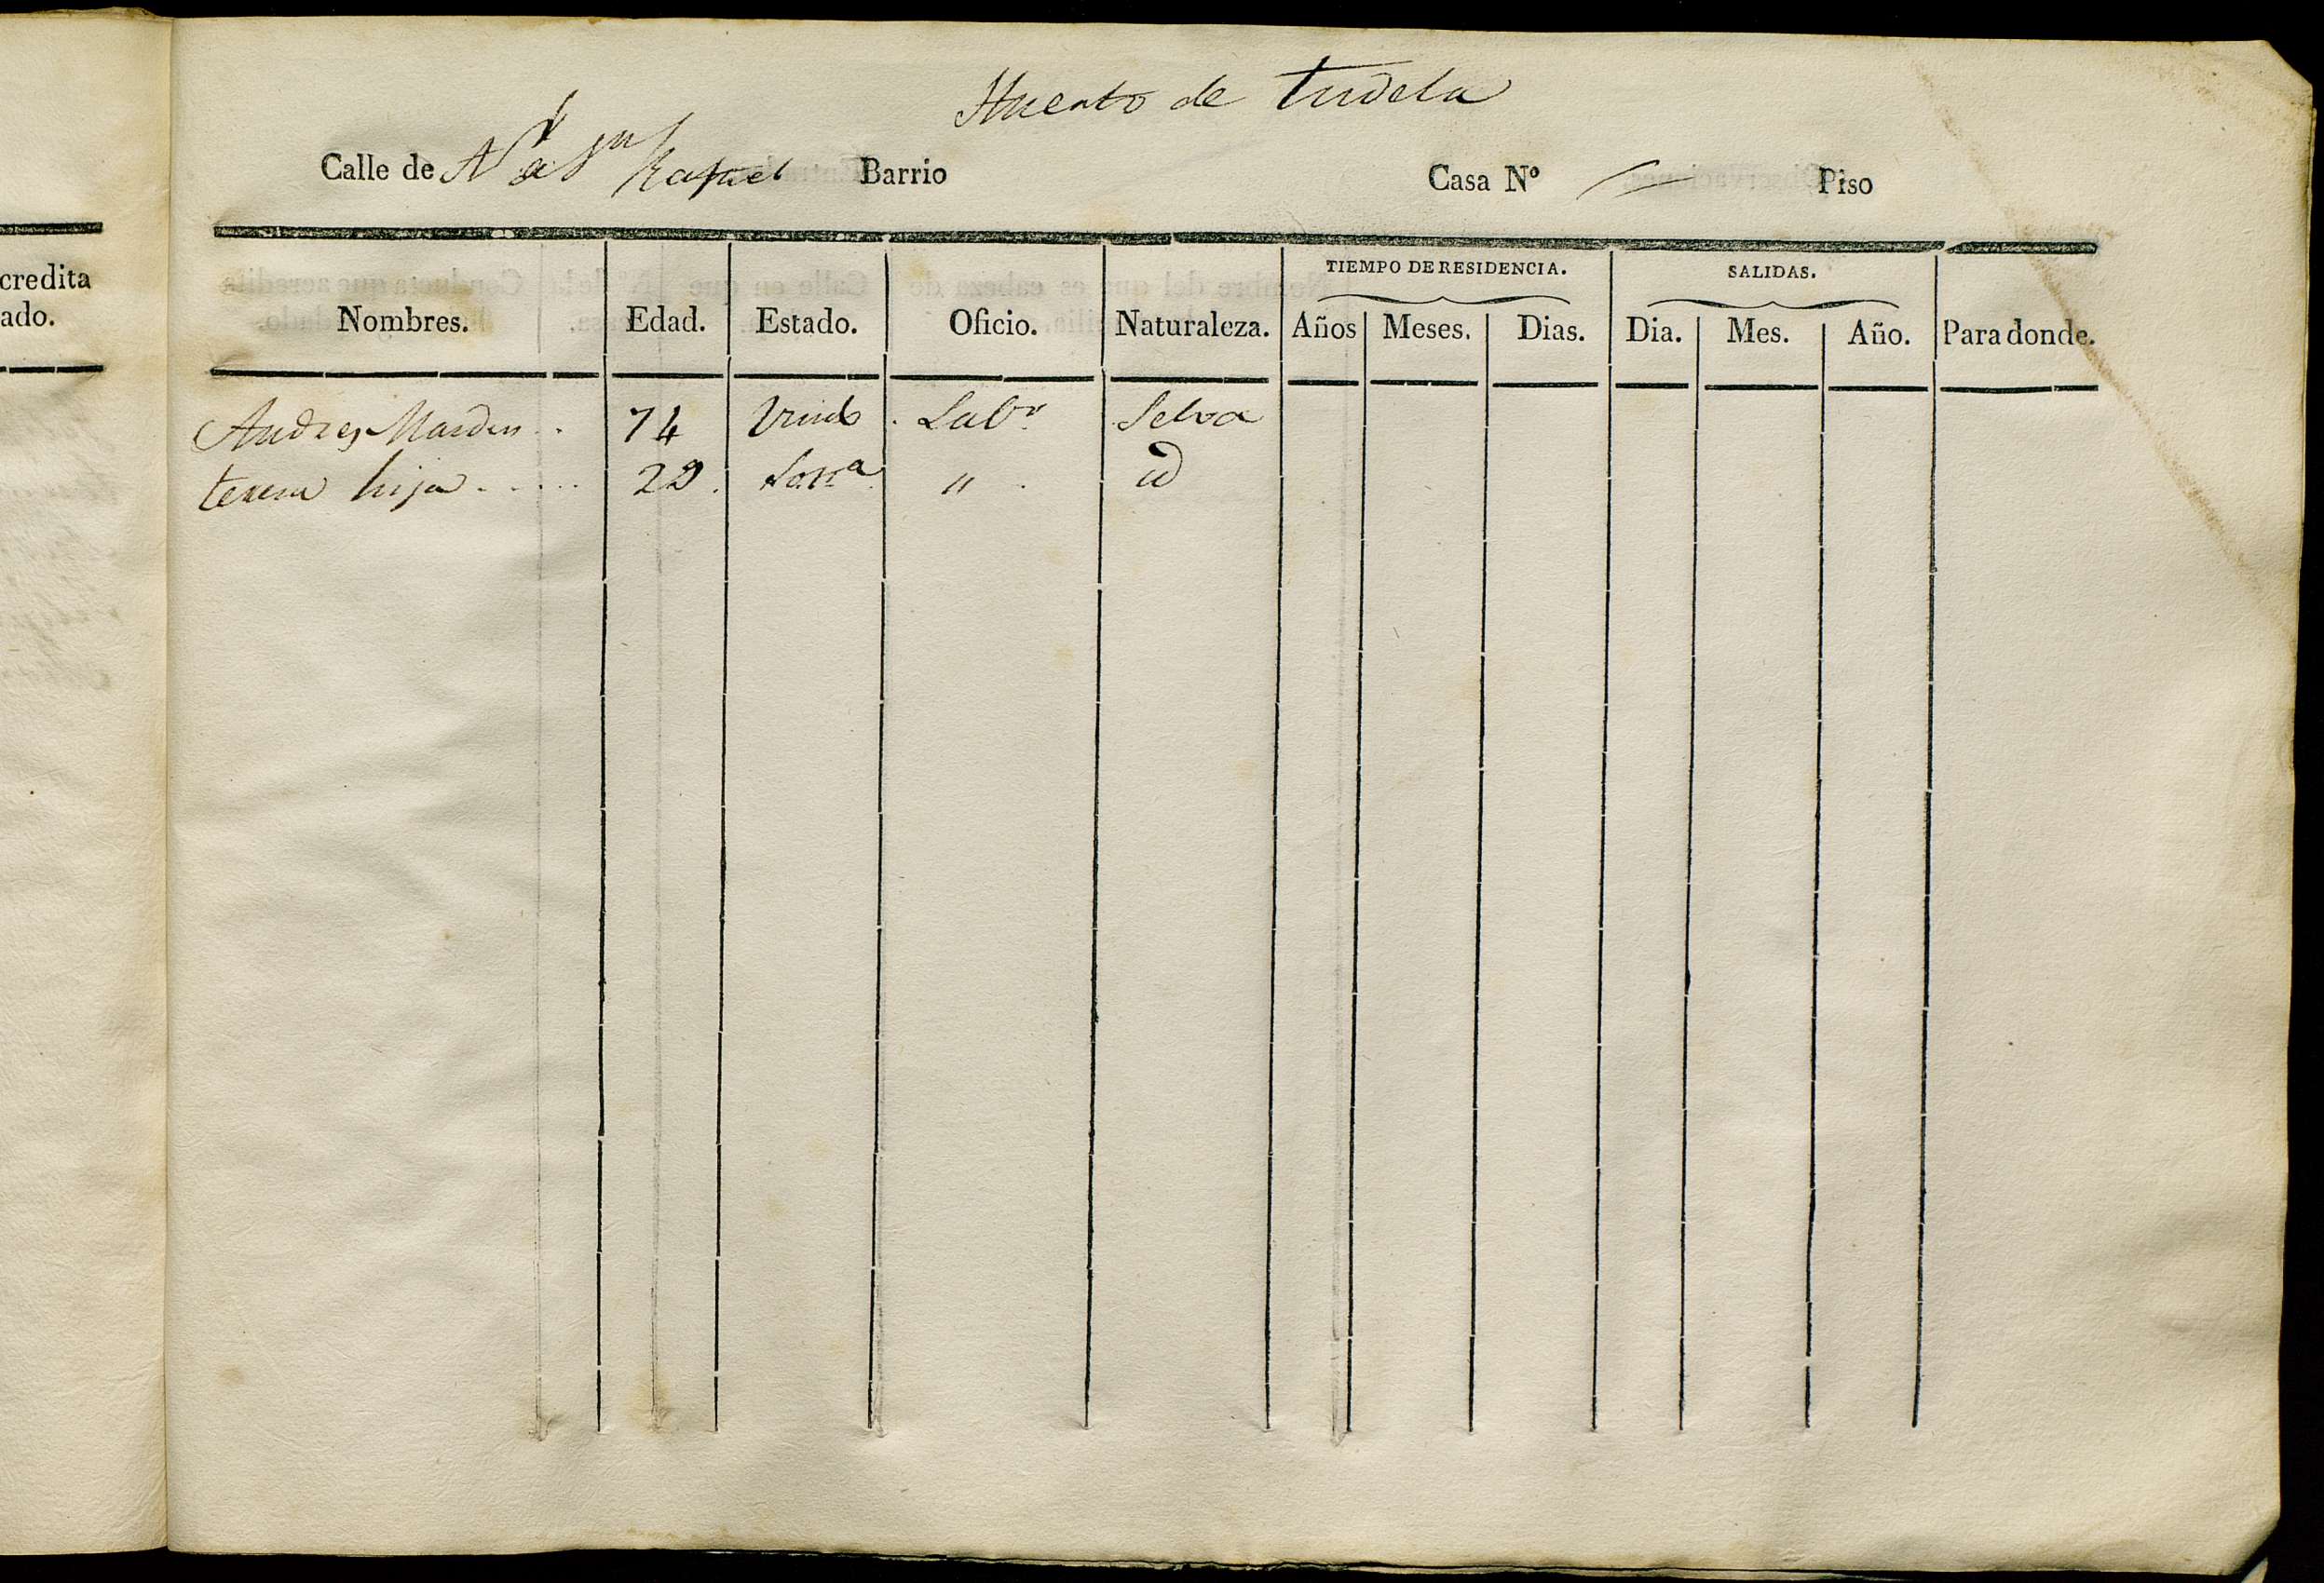 Huerto de tudela
Calle de Nª Sª Rafael Barrio Casa Nº Piso
credita
ado.
TIEMPO DE RESIDENCIA. SALIDAS.
Nombres. Edad. Estado. Oficio. Naturaleza. Años Meses. Dias. Dia. Mes. Año. Para donde.
Andres 74 Viud Labr. Selva
teresa hija 22 Solta " id